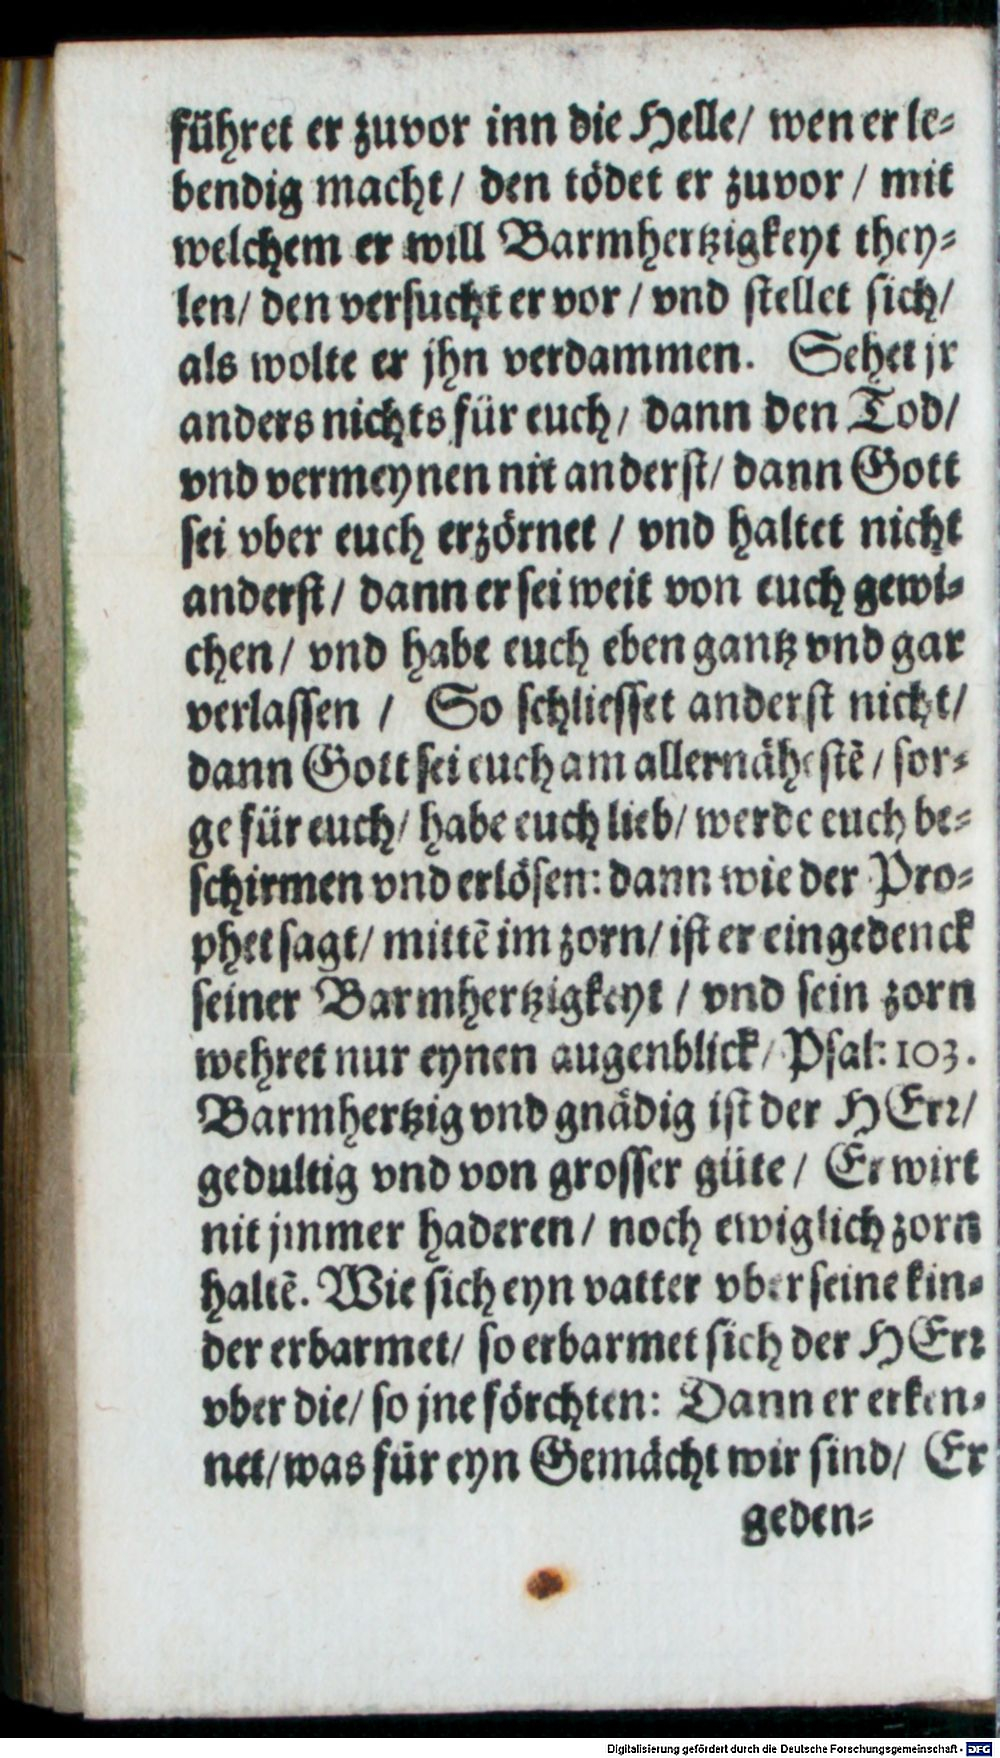 führet er zuvor inn die Helle/ wen er le-
bendig macht/ den tödet er zuvor/ mit
welchem er will Barmhertzigkeyt they-
len/ den versucht er vor/ vnd stellet sich/
als wolte er jhn verdammen. Sehet jr
anders nichts für euch/ dann den Tod/
vnd vermeynen nit anderst/ dann Gott
sei vber euch erzörnet/ vnd haltet nicht
anderst/ dann er sei weit von euch gewi-
chen/ vnd habe euch eben gantz vnd gar
verlassen/ So schliesset anderst nicht/
dann Gott sei euch am allernähestē/ sor-
ge für euch/ habe euch lieb/ werde euch be-
schirmen vnd erlösen: dann wie der Pro-
phet sagt/ mittē im zorn/ ist er eingedenck
seiner Barmhertzigkeyt/ vnd sein zorn
wehret nur eynen augenblick/ Psal: 103.
Barmhertzig vnd gnädig ist der HErr/
gedultig vnd von grosser güte/ Er wirt
nit jmmer haderen/ noch ewiglich zorn
haltē. Wie sich eyn vatter vber seine kin-
der erbarmet/ so erbarmet sich der HErr
vber die/ so jne förchten: Dann er erken-
net/ was für eyn Gemächt wir sind/ Er
geden-
Digitalisierung gefördert durch die Deutsche Forschungsgemeinschaft - DFG